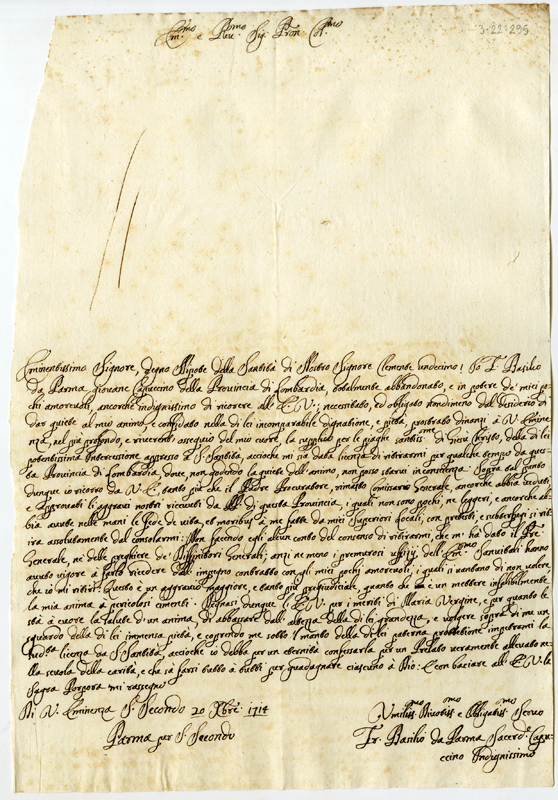 Em.mo e Rev.mo Sig. Pron. Col.mo
3-22-295
Eminentissimo Signore, degno Nipote della Santità di Nostro Signore Clemente undecimo! Io F. Basilio
da Parma giovane Capuccino della Provincia di Lombardia totalmente abbandonato, e in potere de' miei po-
chi amorevoli, ancorche indignissimo di ricorere all'E.V.; necessitato, ed obligato nondimeno dal desiderio di
dar quiete al mio animo, e confidato nella di lei incomparabile dignatione, e pietà, prostrato dinanzi à V. Eminen-
za, nel più profondo, e riverente ossequio del mio cuore, la supplico per le piaghe santiss. di Giesù Christo, della di lei
potentissima Intercessione appresso S. Santità, accioche mi sia data licenza di ritirarmi per qualche tempo da que-
sta Provincia di Lombardia, dove, non godendo la quiete dell'animo, non posso starvi in conscienza. Sopra tal punto
dunque io ricorro da V.E., tanto più che il Padre Procuratore, rimasto Comissario Generale, ancorche abbia veduti,
e Approvati li aggravi nostri ricevuti da PP. di questa Provincia, i quali non sono pochi, ne leggeri, e ancorche ab-
bia avute nelle mani le fede de vita, et moribus à me fatte da miei Superiori locali, con pretesti, e sutterfugi si riti-
ra assolutamente dal consolarmi: Non facendo egli alcun conto del consenso di ritirarmi, che m'ha dato il Pre
Generale, ne delle preghiere de' Diffinitori Generali; anzi ne meno i premurosi uffizij dell'Em.mo Sanvitali hanno
avuto vigore à farlo ricedere dall'impegno contratto con gli miei pochi amorevoli, i quali si vantano di non volere
che io mi ritiri: Questo è un aggravio maggiore, e tanto più pregiudiciale, quanto che un mettere infalibilmente
la mia anima à pericolosi cimenti. Degnasi dunque l'E.V. per i meriti di Maria Vergine, e per quanto le
stà à cuore la salute di un anima, di abbassare dall'altezza della di lei grandezza, e volgere sopra di me un
sguardo della di lei immensa pietà, e coprendo me sotto l'manto della di lei paterna protettione impetrarmi la
sud.ta licenza da S. Santità, accioche io debba per un eternità confessarla per un Prelato veramente allevato ne-
lla scuola della carità, e che sà farsi tutto à tutti per guadagnare ciascuno à Dio: E con baciare all'E.V. la
Sagra Porpora mi rassegno
Di V. Eminenza S. Secondo 20 Xbre 1714
Parma per S. Secondo
Umiliss.mo Divotiss.mo e Obligatiss.mo Servo
Fr. Basilio da Parma Sacerd. Capu-
ccino Indignissimo